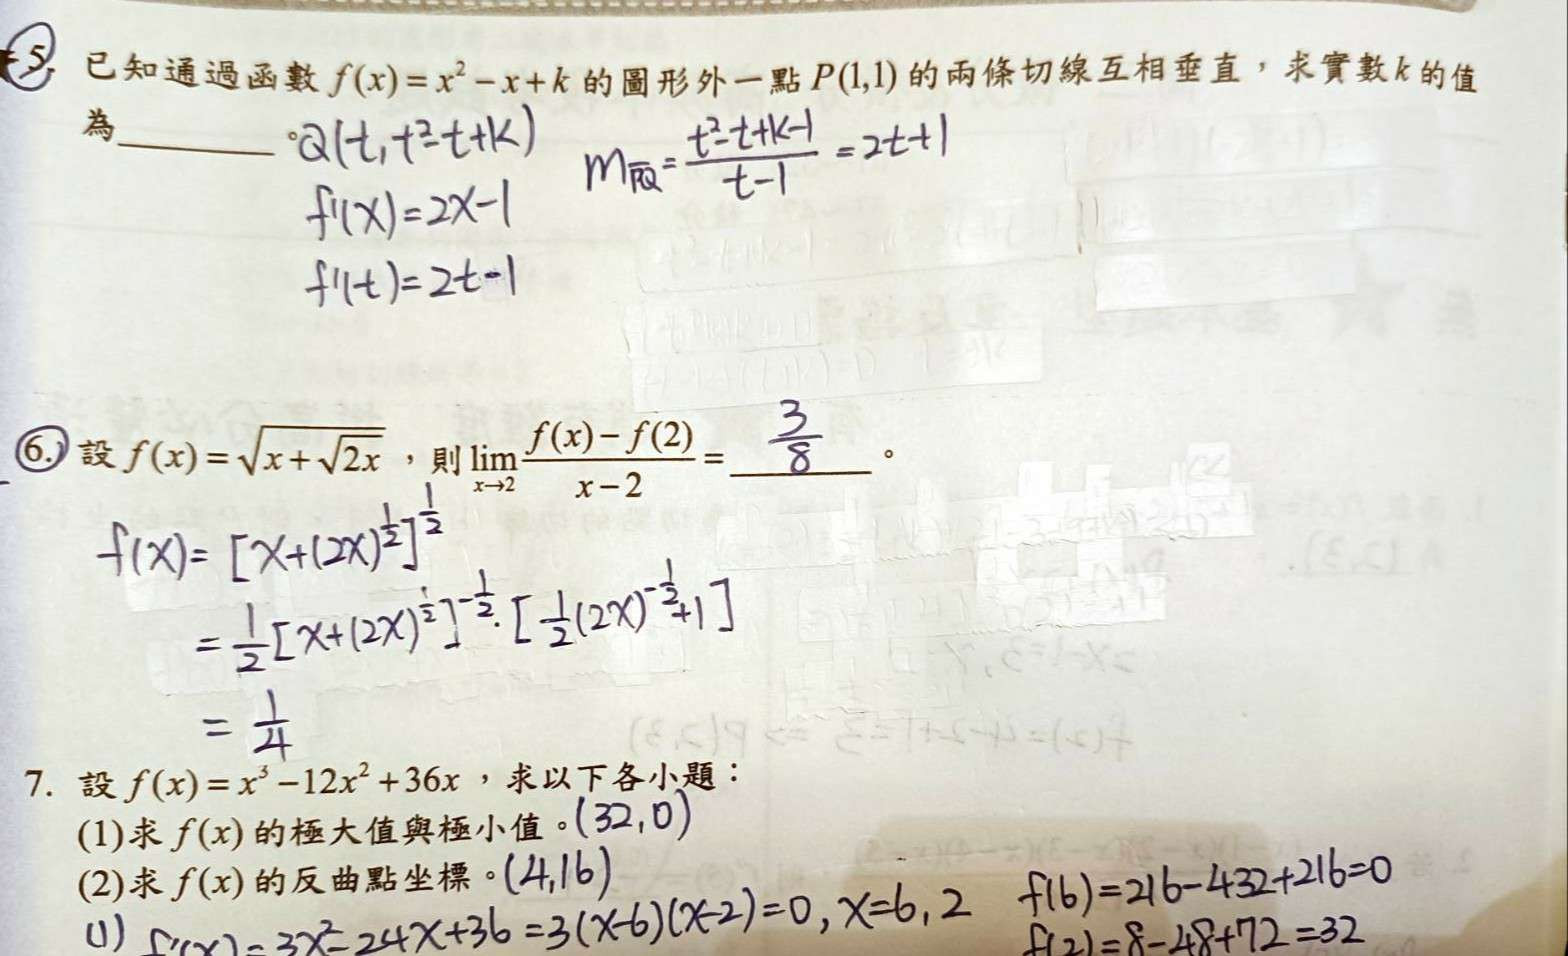 5. 已知通過函數 f(x) = x² − x + k 的圖形外一點 P(1,1) 的兩條切線互相垂直，求實數 k 的值
為＿＿＿＿。
Q(t, t²-t+k)
m_PQ = (t²-t+k-1)/(t-1) = 2t+1
f'(x)=2x-1
f'(t)=2t-1
6. 設 f(x) = √(x + √(2x))，則 lim_{x→2} (f(x) − f(2))/(x − 2) = 3/8 。
f(x) = [x+(2x)^(1/2)]^(1/2)
= 1/2 [x+(2x)^(1/2)]^(-1/2) · [1/2 (2x)^(-1/2) +1]
= 1/4
7. 設 f(x) = x³ − 12x² + 36x，求以下各小題：
(1)求 f(x) 的極大值與極小值。(32,0)
(2)求 f(x) 的反曲點坐標。(4,16)
(1) f'(x)=3x²-24x+36=3(x-6)(x-2)=0, x=6, 2
f(6)=216-432+216=0
f(2)=8-48+72=32